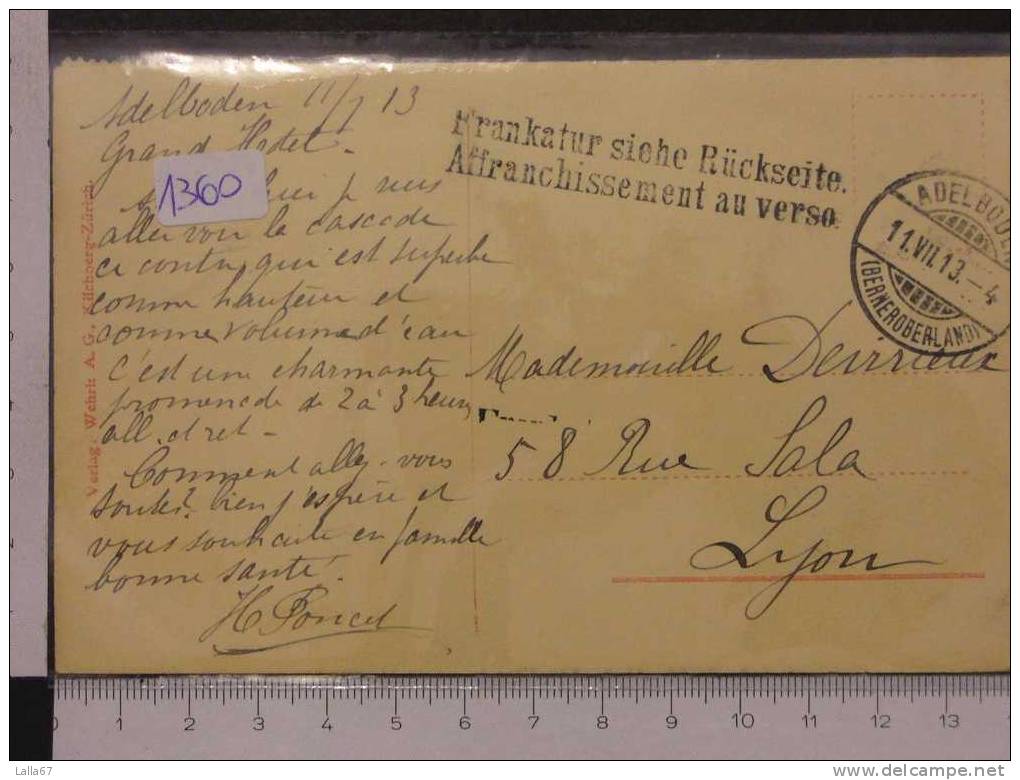 Adelboden 11/7 13
Grand Hotel -
1360
aller voir la cascade
ci contre qui est superbe
comme hauteur et
comme volume d'eau
c'est une charmante
promenade de 2 à 3 heures
all. et ret -
Comment allez-vous
toutes? bien j'espère et
vous souhaite en famille
bonne santé.
H Poncet
Verlag, Wehrli A. G., Kilchberg-Zürich.
Frankatur siehe Rückseite.
Affranchissement au verso.
ADELBODEN
11.VII.13.-4
(BERNEROBERLAND)
Mademoiselle Devrieux
58 Rue Sala
Lyon
0 1 2 3 4 5 6 7 8 9 10 11 12 13
Lalla67
www.delcampe.net